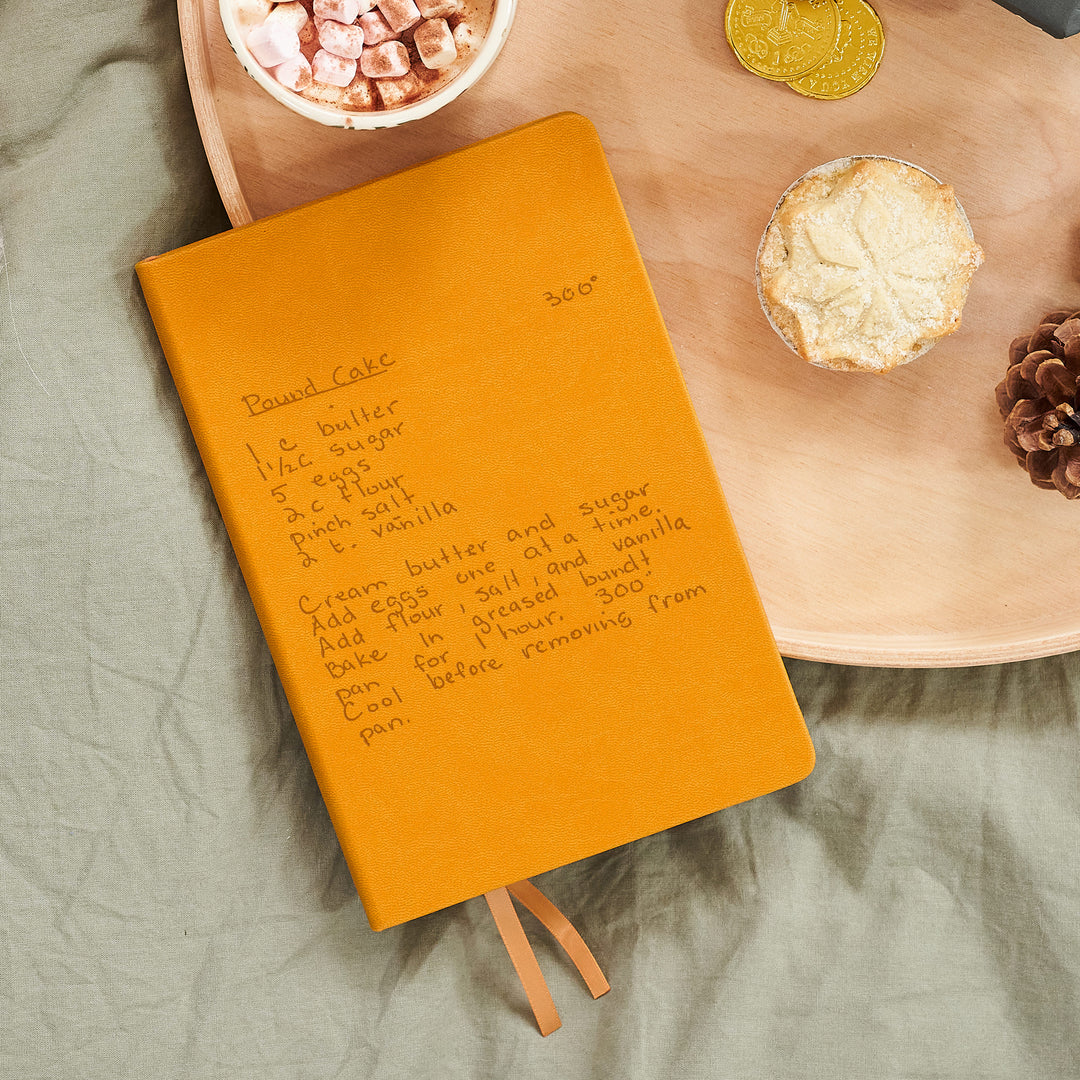 300°
Pound Cake
1 c butter
1 1/2c sugar
5 eggs
2 c flour
pinch salt
2 t. vanilla
Cream butter and sugar
Add eggs one at a time.
Add flour, salt, and vanilla
Bake in greased bundt
pan for 1 hour. 300°
Cool before removing from
pan.